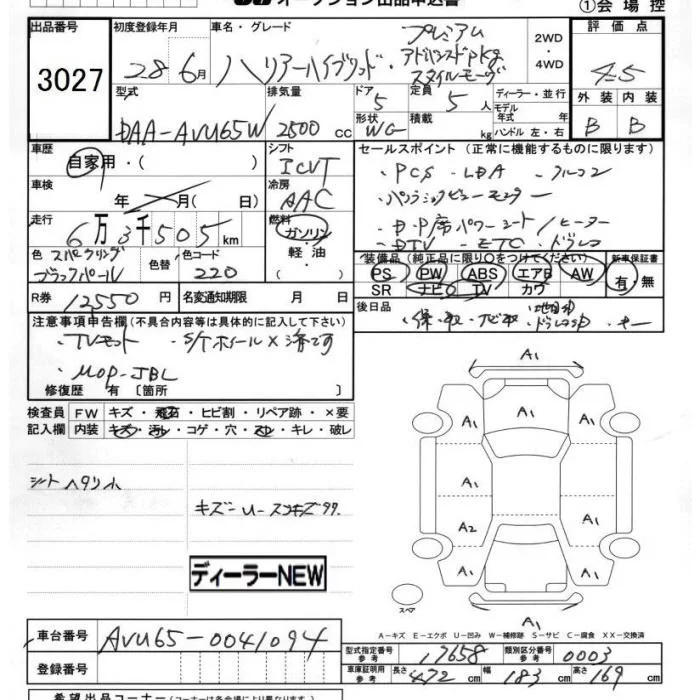 オークション出品申込書
①会場控
出品番号 3027
初度登録年月 28 6月
車名・グレード ハリアーハイブリッド・プレミアム アドバンスドpkg スタイルモーヴ
2WD ・ 4WD
評価点 4.5
外装 B 内装 B
型式 DAA-AVU65W
排気量 2500 cc
ドア 5
形状 WG
定員 5 人
積載 kg
ディーラー・並行
モデル年式 年式
ハンドル 左・右
車歴 自家用・( )
シフト ICVT
セールスポイント(正常に機能するものに限ります)
・PCS ・LDA ・フルセグ
・パノラミックビューモニター
・D・P席パワーシート/ヒーター
・DTV ・ETC ・ドラレコ
車検 年 月( 日)
冷房 AAC
走行 6万3千505km
燃料 ガソリン・軽油・( )
色 スパークリングブラックパール
色替
色コード 220
装備品(純正品に限り○をつけてください)
PS PW ABS エアB AW
SR ナビ TV カワ
新車保証書 有・無
R券 12550円
名変通知期限 月 日
後日品 ・保・取・ナビ取
注意事項申告欄(不具合内容等は具体的に記入して下さい)
・TVキット
・MOP-JBL
修復歴 有 〔箇所 〕
検査員記入欄
FW キズ・飛石・ヒビ割・リペア跡・×要
内装 キズ・汚レ・コゲ・穴・スレ・キレ・破レ
シートヘタリ小
ディーラーNEW
A₁
A₁
A₁ A₁ A₁
A₁
A₂ A₁
A₁ A₁ A₁
A₁
スペア
A-キズ E-エクボ U-凹み W-補修跡 S-サビ C-腐食 XX-交換済
車台番号 AVU65-0041094
型式指定番号 参考 17658
類別区分番号 参考 0003
登録番号
車庫証明用 参考 長さ 472 cm 幅 183 cm 高さ 169 cm
希望出品コーナー(コーナーは各会場により異なります)